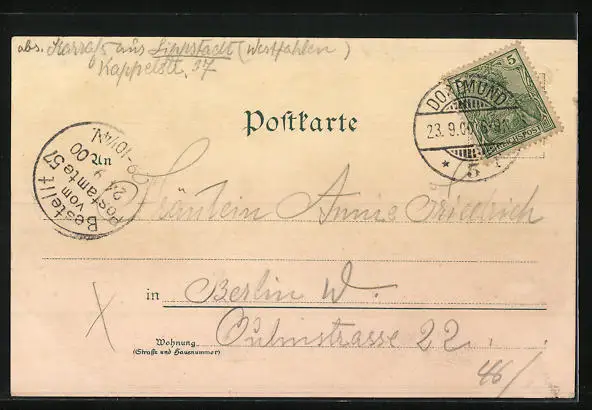 abs. Karraß aus Lippstadt (Westfahlen)
Kappelstr. 37
Postkarte
5
REICHSPOST
DORTMUND
23.9.00 8-9
* 5
Bestellt
vom
Postamte 57
24 9 00
9-10½V.
An
Fräulein Annie Friedrich
in Berlin W.
Culmstrasse 22.
Wohnung
(Straße und Hausnummer)
46/